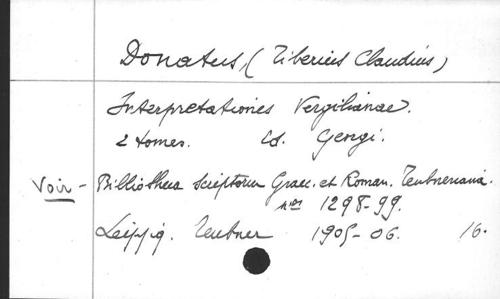 Donatus, (Tiberius Claudius)
Interpretationes Vergilianae.
2 tomes. Ed. Georgi.
Voir - Bibliotheca Scriptorum Graec. et Roman. Teubneriana.
nos 1298-99.
Leipzig. Teubner 1905-06. 16.